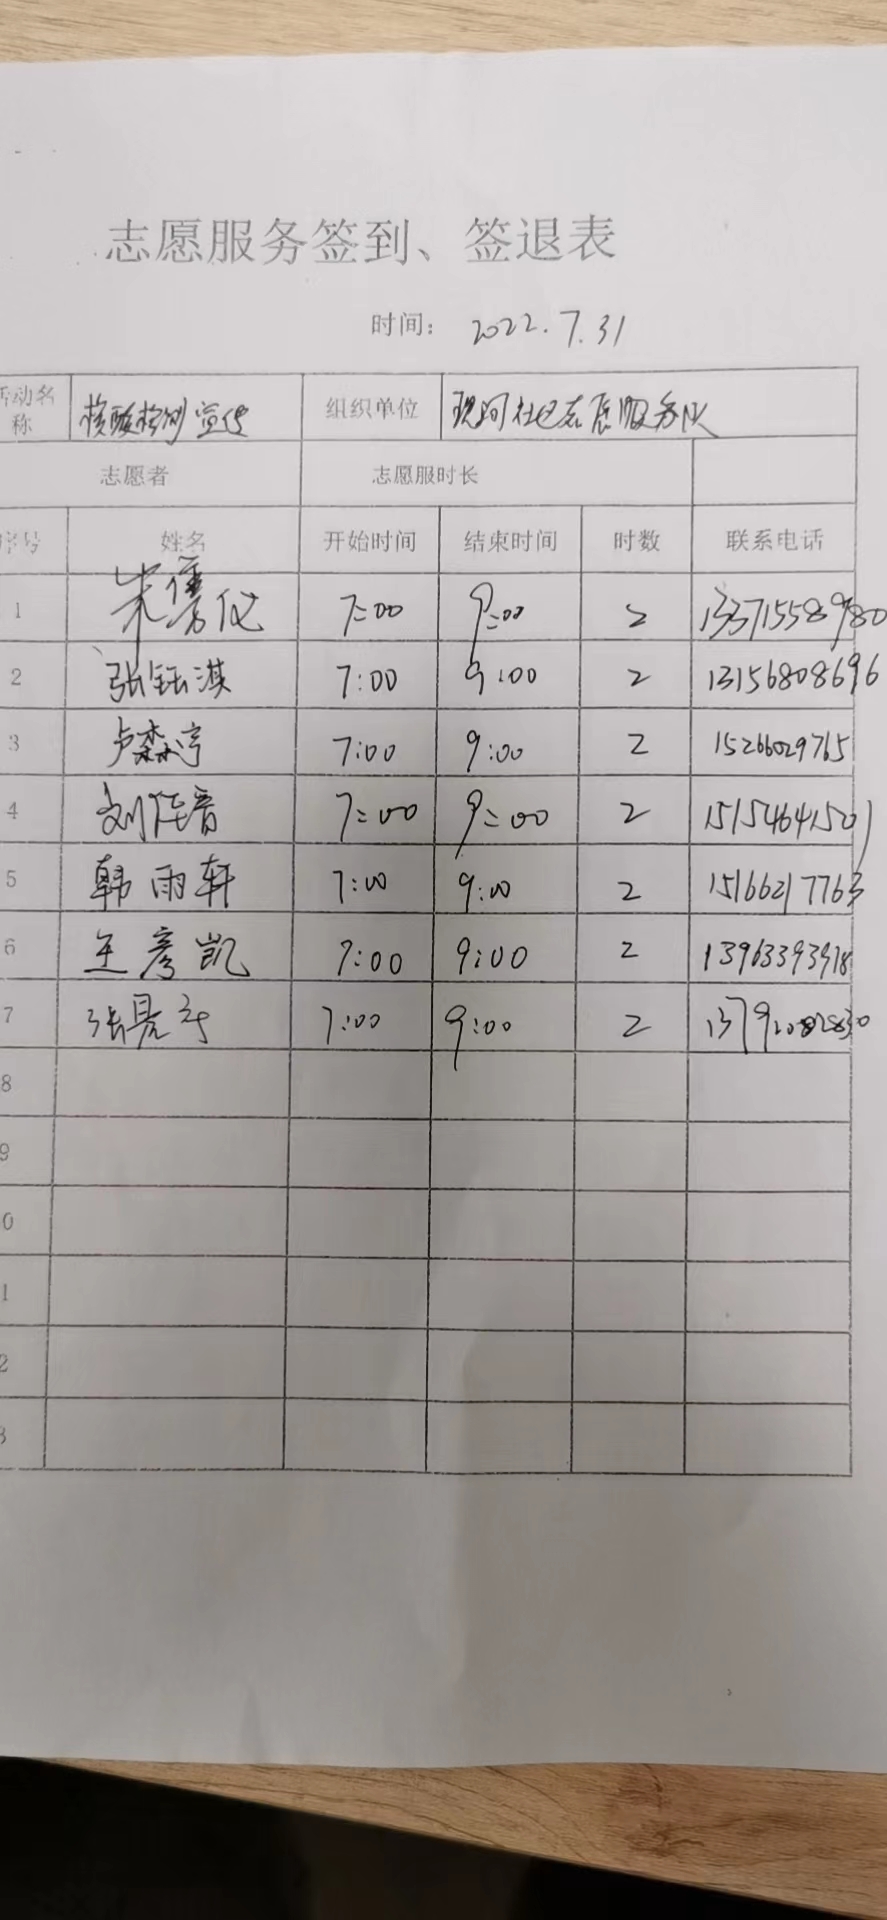 志愿服务签到、签退表
时间: 2022.7.31
活动名称 核酸检测宣传 组织单位 现河社区志愿服务队
志愿者 志愿服时长
序号 姓名 开始时间 结束时间 时数 联系电话
1 朱 7:00 9:00 2 13371558980
2 张钰淇 7:00 9:00 2 13156808696
3 卢森 7:00 9:00 2 15266029765
4 刘佳音 7:00 9:00 2 15154641501
5 韩雨轩 7:00 9:00 2 15166217763
6 王彦凯 7:00 9:00 2 13963393918
7 张 7:00 9:00 2
8
9
0
1
2
3